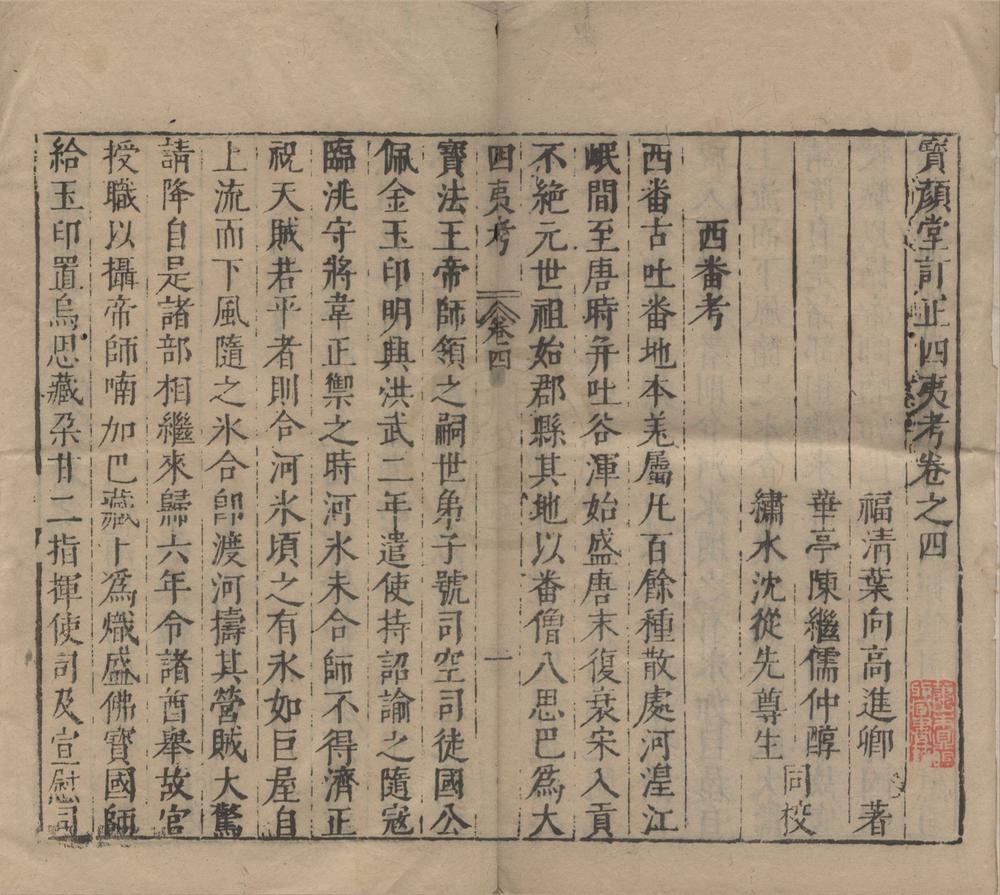 寳顏堂訂正四夷考卷之四
福清葉向高進卿 著
華亭陳繼儒仲醇 同校
繡水沈從先尊生
西番考
西番古吐番地本羌屬凡百餘種散處河湟江
岷間至唐時并吐谷渾始盛唐末復衰宋入貢
不絶元世祖始郡縣其地以番僧八思巴爲大
四夷考 卷四 一
寳法王帝師領之嗣世弟子號司空司徒國公
佩金玉印明興洪武二年遣使持詔諭之隨寇
臨洮守將韋正禦之時河氷未合師不得濟正
祝天賊若平者則合河氷頃之有氷如巨屋自
上流而下風隨之氷合卽渡河擣其營賊大驚
請降自是諸部相繼來歸六年令諸酋舉故官
授職以攝帝師喃加巴藏卜爲熾盛佛寳國師
給玉印置烏思藏朶甘二指揮使司及宣慰司